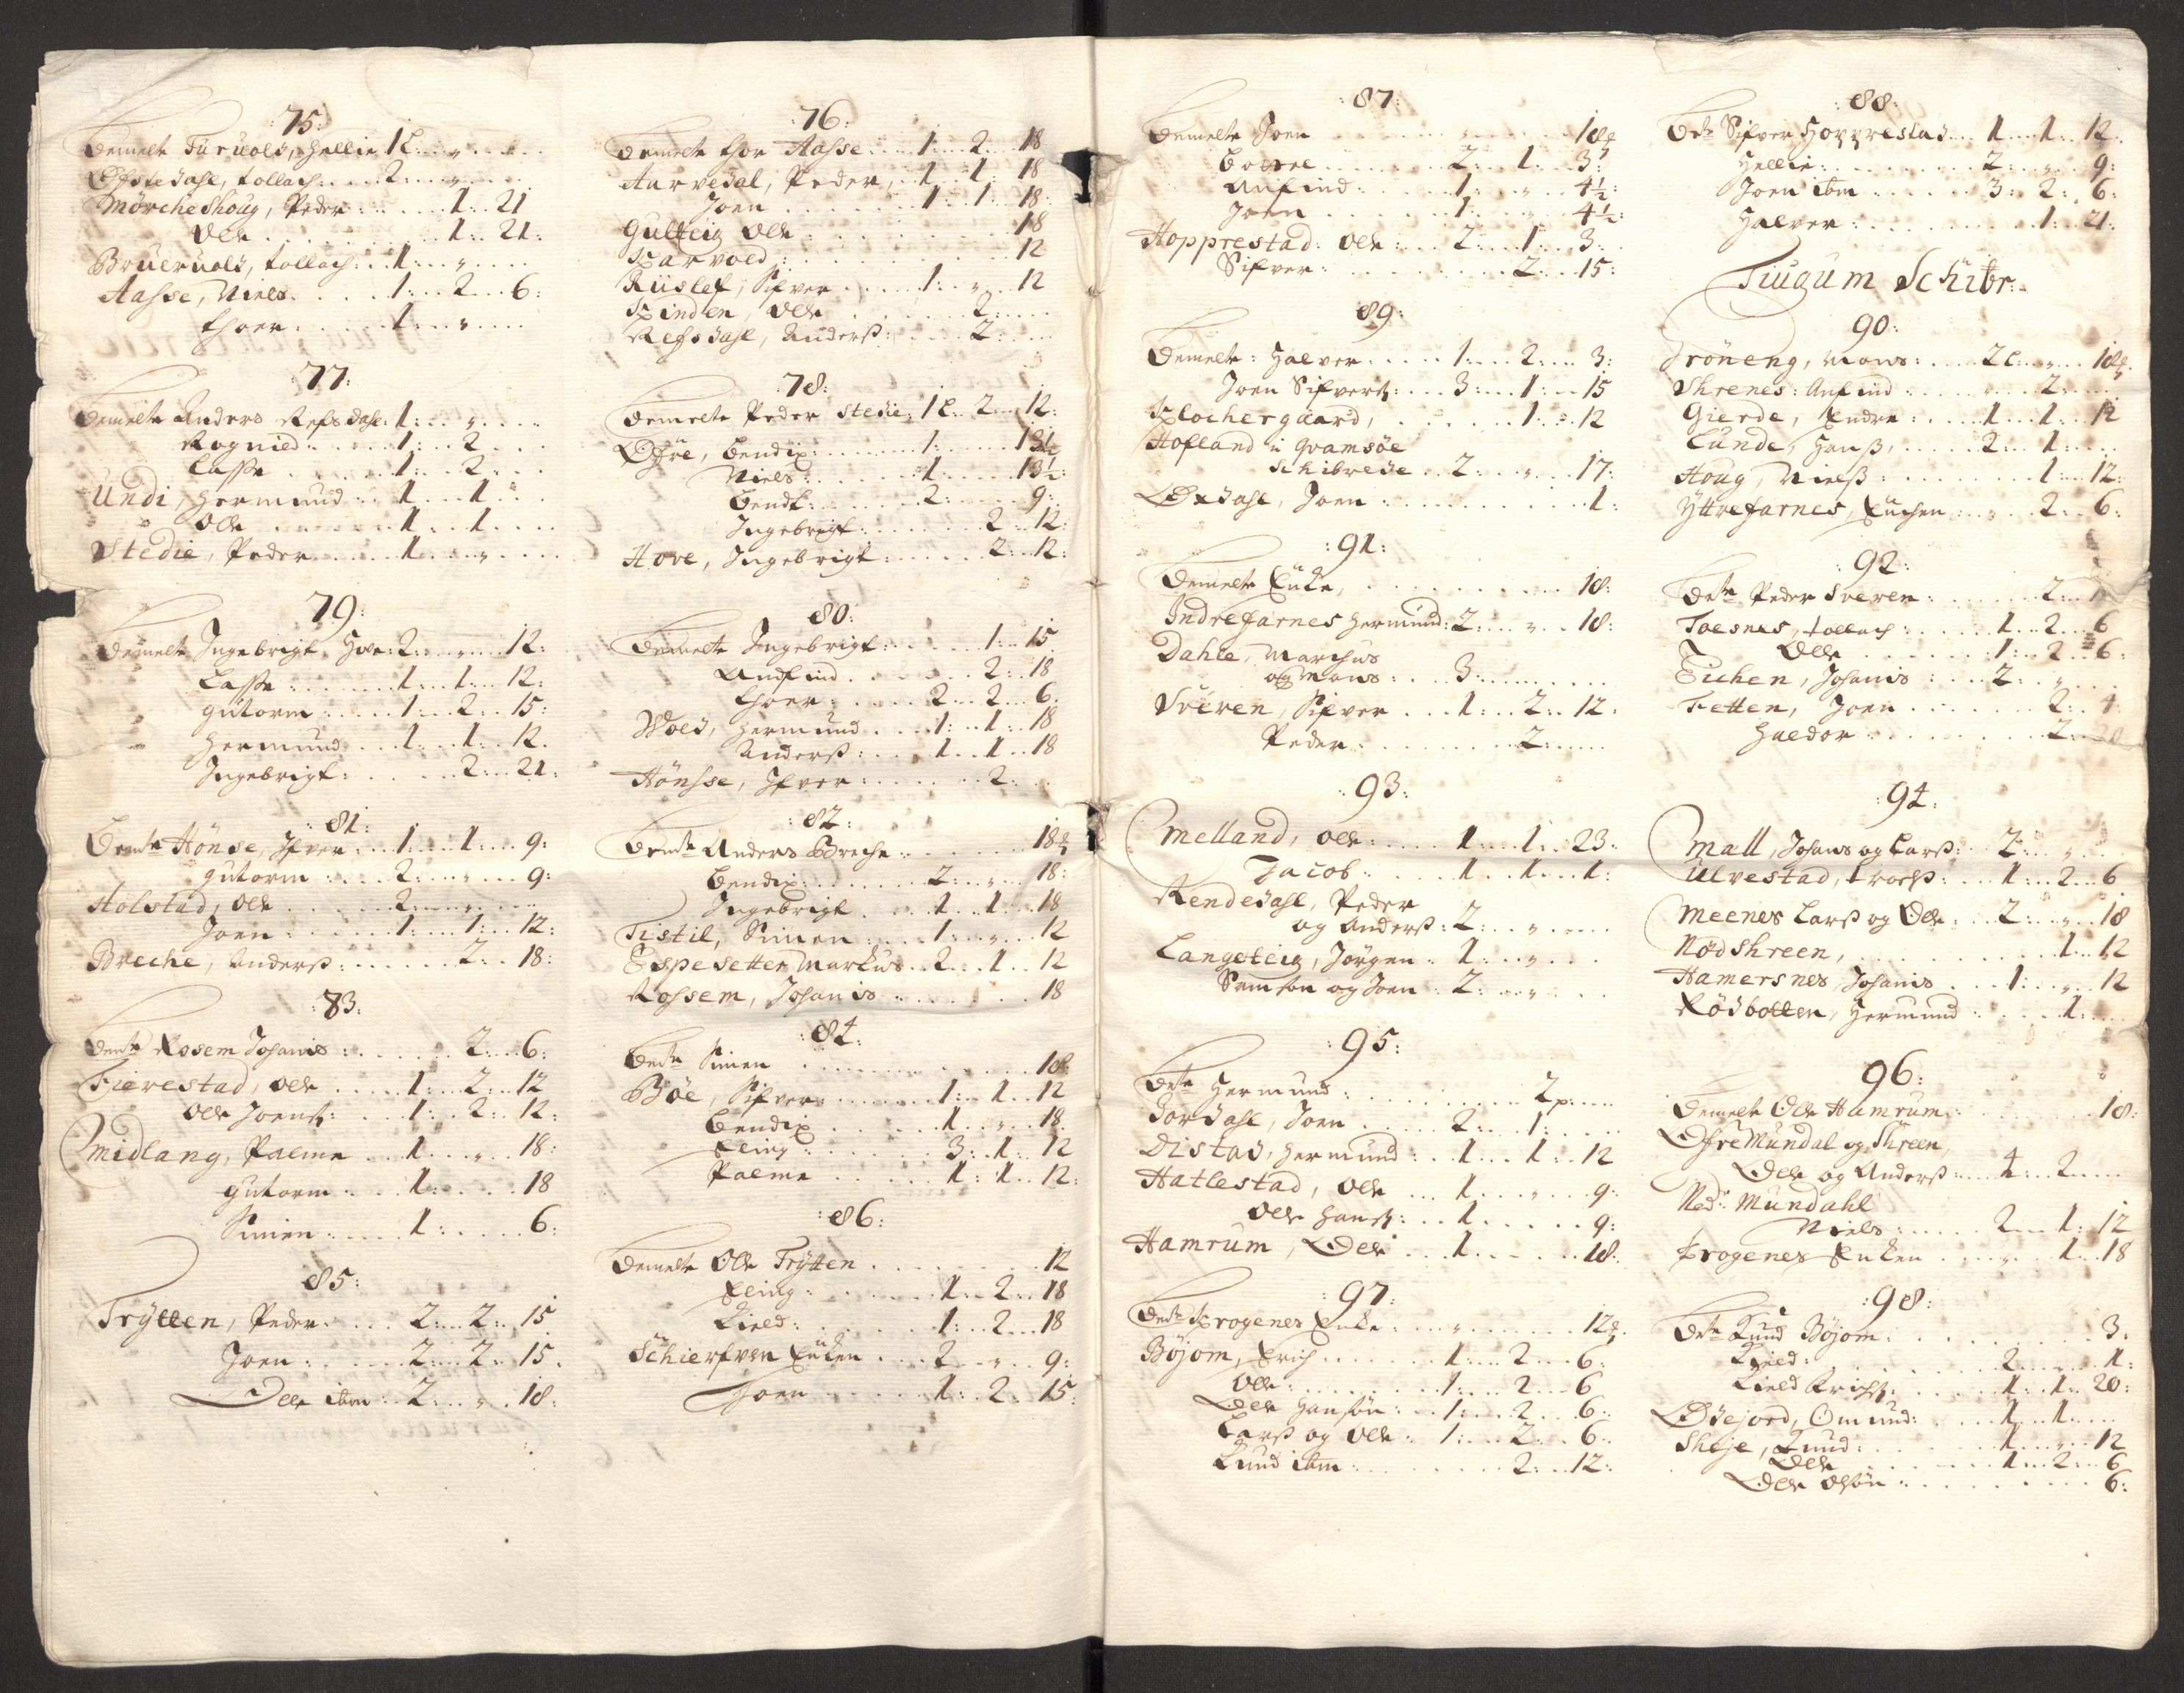 75:
Bemelte Turvold, Hellie 1 L . . „ . . .
Ofstedahl, Tollach: . . . 2: . . „ . . .
Mörcheshoug, Peder: . . . . 1: 21
Olle . . . . . 1: 21:
Bruervold, Tollach: . . 1: . . „ . . .
Aasse, Niels. . . . 1: . . 2. . 6:
Thoer . . . . . 1: . . „ . . .
77:
Bemelte Anders Refsdahl: 1: . . „ . . .
Rognild . . . . 1: . . 2 . . .
Lasse . . . . . 1: . . 2 . . .
Undi, Hermund . . 1. . . 1: . .
Olle . . . . . 1. . . 1. . . .
Stedie, Peder . . . . 1. . . „ . . .
79:
Bemelte Ingebrigt Hove: 2: . . „ . . 12:
Lasse . . . . . 1: . . 1: . . 12:
Gutorm . . . . . 1: . . 2: . . 15:
Hermund . . . 1: . . 1: . . 12.
Ingebrigt: . . . . . 2: . . 21:
81:
Bemte Hönse, Ifver . . 1: . . . 1: . . 9:
Gutorm . . . . 2: . . „ . . 9:
Holstad, Olle . . . . . 2: . . „ . . .
Joen . . . . . 1: . . 1: . . 12:
Breche, Anderss: . . . . . . 2: . . 18:
83:
Bemte Rosem Johanis: . . . . . 2: . . 6:
Fierestad, Olle . . . . 1: . . 2: . . 12
Olle Joens: . . . 1: . . 2: . . 12:
Midlang, Palme . . 1. . . „ . . 18:
Gutorm . . . 1: . . . . . 18
Simen: . . . . 1: . . . . . 6:
85:
Trÿtten, Peder. . . . 2: . . 2: . . 15
Joen: . . . . . 2: . . 2: . . 15.
Olle ibm: . 2: . . „ . . 18:
76:
Bemelte Thor Aasse . . . 1: . . 2: . . 18
Aurvedal, Peder, . . 1. . . 1: . . 18
Joen . . . . . 1: . . 1: . . 18:
Gulteig Olle . . . . . . . . 18
Skarvold: . . . . . . . . . 12
Rüslef, Sifver . . . . . 1: . . „ . . 12
Skinden, Olle . . . . . . . 2: . . .
Refsdahl, Anderss: . . . . . 2: . . .
78:
Bemelte Peder Stedie: 1 L. . 2. . 12:
Öfre, Bendix: . . . . . . 1: . . . 13½
Niels: . . . . . 1. . . . . 13½:
Bendt: . . . . . 2: . . . . . 9:
Ingebrigt . . . . . . . 2: . . 12:
Hove, Ingebrigt: . . . . . . 2: . . 12:
80:
Bemelte Ingebrigt: . . . . . 1: . . 15
Andfind . . . . . . . 2: . . 18
Thoer: . . . . 2: . . 2: . . 6:
Wold, Hermund . . . 1: . . 1: . . 18
Anderss: . . . . 1. . . 1. . . 18
Hönsse, Ifver . . . . . . . 2: . . .
82:
Bemte Anders Breche . . . . . . . 18
Bendix: . . . . . 2: . . „ . . 18:
Ingebrigt . . . 1. . . 1. . . 18
Tistil, Simen: . . . . 1: . . „ . . 12
Espesetter Markus . . 2. . . 1. . . 12
Rossem, Johanis . . . . . . . 18
84:
Bemte Simen . . . . . . . . . 18:
Böe, Sifver: . . . . . . 1: . . 1. . . 12
Bendix . . . . . 1. . . „ . . 18.
Eling . . . . . . 3: . . 1. . . 12
Palme . . . . . . 1: . . 1. . . 12:
86:
Bemelte Olle Trÿtten . . . . . . . 12
Eling: . . . . . . 1. . . 2: . . 18
Kield: . . . . . . 1: . . 2: . . 18
Schierfven Enken . . . 2: . . „ . . 9:
Joen . . . . . . 1: . . 2: . . 15:
87:
Bemelte Joen . . . . . . . . 18
2: . . 1: . . 3:
Anfind . . . . . 1: . . „ . . 4½:
Joen . . . . . . 1: . . „ . . 4½:
Hopprestad: Olle: . . . 2: . . 1: . . 3:
Sifver: . . . . . . . 2: . . 15:
89:
Bemelte: Halver . . . . . 1: . . 2: . . 3:
Joen Siferss: . . 3: . . 1: . . 15
Klochergaard, . . . . . . . 1: . . 12
Hofland i Qvamsöe
Schibrede . . 2: . . „ . . 17:
Öxdahl, Joen . . . . . . . . . 1:
91:
Bemelte Enke, . . . . . . . . . 18:
Indrefarnes Hermund: 2: . . „ . . 18:
Dahle, Marchus
og Mons: . . 3: . . . . .
Sveren, Sifver . . . 1: . . 2: . . 12.
Peder . . . . . . . 2: . . .
93:
Melland, Olle: . . . . 1. . . 1: . . 23:
Jacob . . . . . 1. . . 1. . . 1:
Rendedahl, Peder
og Anderss: 2: . . „ . . .
Langeteig, Jörgen . . 1: . . „ . . .
Semson og Joen . . 2: . . „ . . .
95:
Bemte Hermund: . . . . . . . 2: . . .
Dordahl, Joen . . . . . 2: . . 1: . . .
Distad, Hermund: . . 1. . . 1: . . 12
Hatlestad, Olle . . . 1. . . „ . . 9:
Olle Hanss: . . 1. . . . . 9:
Hamrum, Olle . . . 1. . . . . 18:
97:
Bemte Progenes Enke: . . . „ . . . . 12
Böjom, Erich . . . . . 1. . . 2: . . 6:
Olle: . . . . . . . 1: . . 2: . . 6
Olle Hansön: . . 1: . . 2: . . 6:
Larss og Olle: . 1: . . 2: . . 6:
Knud ibm: . . . . . . . 2: . . 12:
88:
Bemte Sifver Hopprestad . . 1. . . 1. . . 12.
Hellie: . . . . . . . 2: . . „ . . 9:
Joen ibm . . . . . 3: . . 2: . . 6:
Halver: . . . . . . . . 1: . . 21:
Tiugum Schibr:
90:
Dröneng, Mons: . . . . 2 L: . . „ . . 18
Shrenes: Anfind . . . . . „ . . 2: . . .
Gierde, Endre: . . . 1. . . 1. . . 12
Lunde, Hanss, . . . . 2: . . 1: . . .
Houg, Nielss: . . . . . . . . 1: . . 12:
Ÿttrefarnes, Enchen . . . . . 2: . . 6:
92:
Bemte Peder Sveren: . . . . . . 2: . .
Toesnes, Tollach: . . . . 1. . . 2. . . 6
Olle . . . . . . 1: . . 2: . . 6:
Eichen, Johanis: . . . 2: . . „ . . .
Fetten, Joen . . . . . . . 2: . . 4.
Haldor . . . . . . . . . 2: . .
94:
Mall, Johans og Larss: . . 2: . . „ . . .
Ulvestad, Troelss: . . . 1. . . 2: . . 6
Meenes Larss og Olle: . . 2: . . „ . . 18
Nödshreen, . . . . . . . . . 1: . . 12
Hamersnes, Johanis . . . 1: . . „ . . 12
Rödbotten, Hermund . . . . . 1: . . .
96:
Bemelte Olle Hamrum: . . . . . . 18:
Öfre Mundal og Skreen,
Olle og Anderss: . . 4: . . 2: . . .
Ned: Mundahl
Niels: . . . . . 2: . . 1: . . 12
Progenes Enken . . . . „ . . 1. . . 18
98:
Bemte Knud Böjom: . . . . . . . . 3:
Kield: . . . . . . . 2: . . „ . . 1:
Kield Erichs: . . . . . 1: . . 1: . . 20:
Ödejord, Omund: . . . 1. . . 1. . . .
Sheje, Knud: . . . . . . 1. . . „ . . 12
Olle . . . . . . . 1. . . 2: . . 6
Olle Olsön: . . . . . . . . . 6: